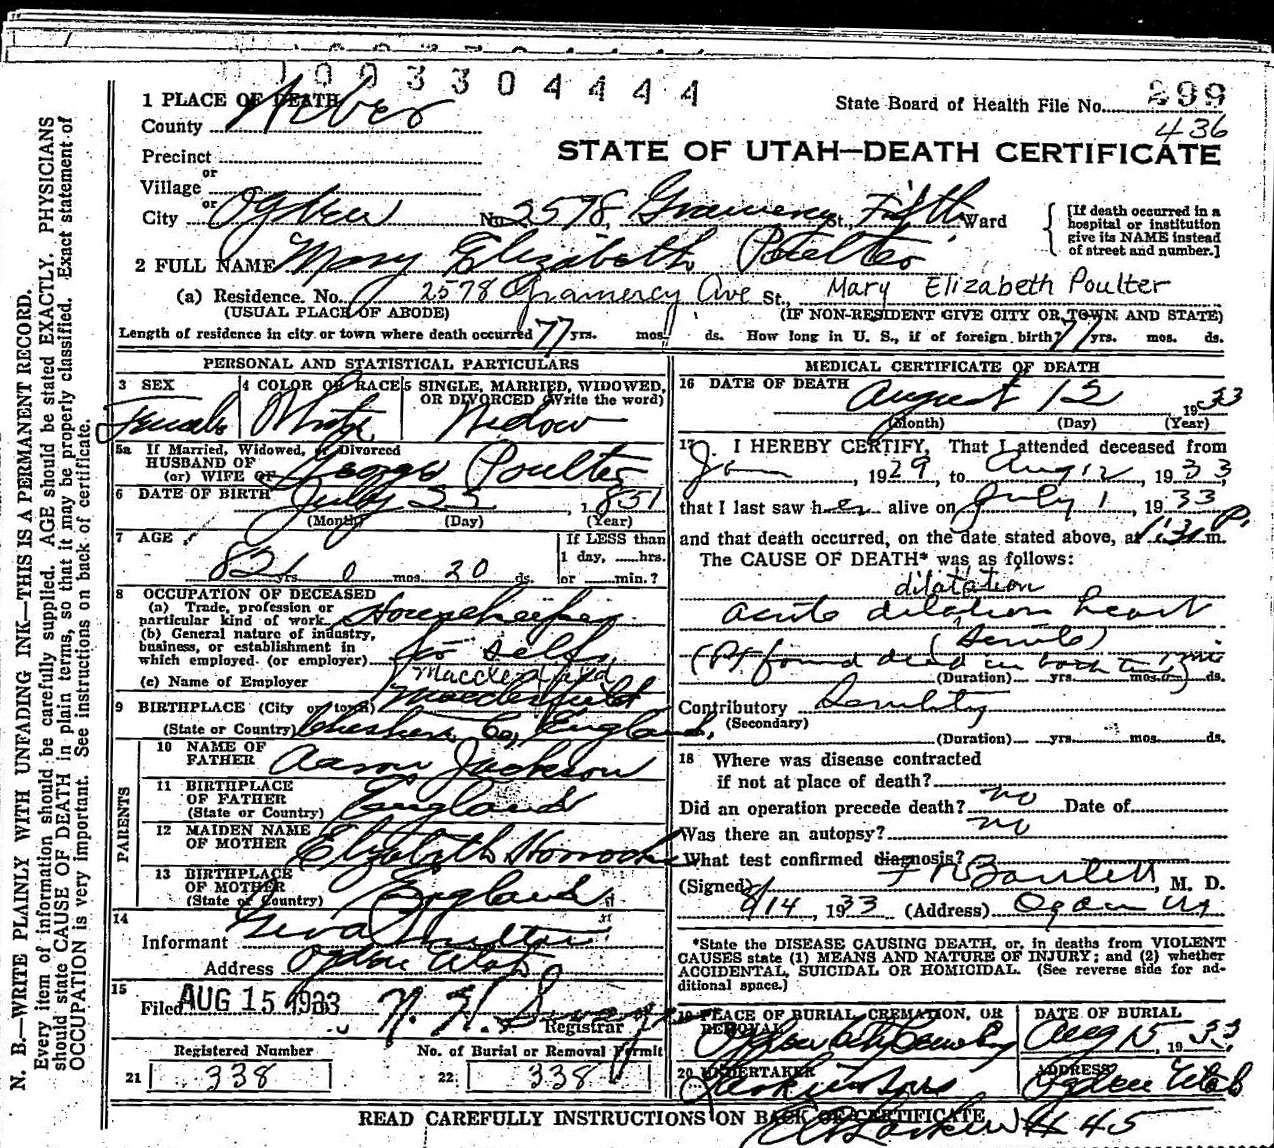 1003304444
1 PLACE OF DEATH
State Board of Health File No. 299
County Weber
436
Precinct
STATE OF UTAH—DEATH CERTIFICATE
or
Village
or
City Ogden No. 2578, Gramercy St., Fifth Ward
[If death occurred in a hospital or institution give its NAME instead of street and number.]
2 FULL NAME Mary Elizabeth Poulter
(a) Residence. No. 2578 Gramercy Ave St., Mary Elizabeth Poulter
(USUAL PLACE OF ABODE) (IF NON-RESIDENT GIVE CITY OR TOWN AND STATE)
Length of residence in city or town where death occurred 77 yrs. mos. ds. How long in U. S., if of foreign birth? 77 yrs. mos. ds.
PERSONAL AND STATISTICAL PARTICULARS
3 SEX
Female
4 COLOR OR RACE
White
5 SINGLE, MARRIED, WIDOWED, OR DIVORCED (Write the word)
Widow
5a If Married, Widowed, or Divorced
HUSBAND OF
(or) WIFE OF George Poulter
6 DATE OF BIRTH July 23, 1851
(Month) (Day) (Year)
7 AGE
82 yrs. 0 mos. 20 ds.
If LESS than
1 day, ......hrs.
or ......min.?
8 OCCUPATION OF DECEASED
(a) Trade, profession or
particular kind of work Housekeeper
(b) General nature of industry,
business, or establishment in
which employed (or employer) for self
(c) Name of Employer
Macclesfield
9 BIRTHPLACE (City or town) Macclesfield
(State or Country) Cheshire Co, England.
PARENTS
10 NAME OF
FATHER Aaron Jackson
11 BIRTHPLACE
OF FATHER
(State or Country) England
12 MAIDEN NAME
OF MOTHER Elizabeth Horrocks
13 BIRTHPLACE
OF MOTHER
(State or Country) England
14
Informant Poulter
Address Ogden Utah
15
Filed AUG 15 1933
Registrar
Registered Number
21 338
No. of Burial or Removal Permit
22 338
MEDICAL CERTIFICATE OF DEATH
16 DATE OF DEATH August 12 1933
(Month) (Day) (Year)
17 I HEREBY CERTIFY, That I attended deceased from
Jan, 1929, to Aug 12, 1933,
that I last saw her alive on July 1, 1933
and that death occurred, on the date stated above, at 1:30 P.m.
The CAUSE OF DEATH* was as follows:
dilatation
acute dilation heart
(Senile)
(Pt found dead in bath
(Duration) yrs. mos. ds.
Contributory Senility
(Secondary)
(Duration) yrs. mos. ds.
18 Where was disease contracted
if not at place of death?
Did an operation precede death? no Date of
Was there an autopsy? no
What test confirmed diagnosis?
(Signed) F R Bartlett, M. D.
8/14, 1933 (Address) Ogden Ut
*State the DISEASE CAUSING DEATH, or, in deaths from VIOLENT
CAUSES state (1) MEANS AND NATURE OF INJURY; and (2) whether
ACCIDENTAL, SUICIDAL OR HOMICIDAL. (See reverse side for ad-
ditional space.)
19 PLACE OF BURIAL, CREMATION, OR
REMOVAL
Ogden City Cemetery
DATE OF BURIAL
Aug 15, 1933
20 UNDERTAKER
Larkin & Sons
ADDRESS
Ogden Utah
READ CAREFULLY INSTRUCTIONS ON BACK OF CERTIFICATE
Larkin # 445
N. B.—WRITE PLAINLY WITH UNFADING INK—THIS IS A PERMANENT RECORD.
Every item of information should be carefully supplied. AGE should be stated EXACTLY. PHYSICIANS
should state CAUSE OF DEATH in plain terms, so that it may be properly classified. Exact statement of
OCCUPATION is very important. See instructions on back of certificate.